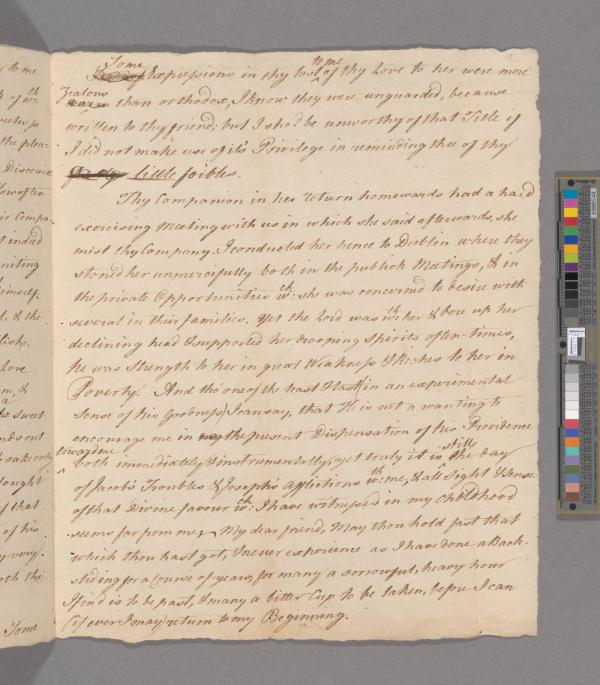 to me
th
Discourse
How often
Compa
t indeed
niting
himself.
& the
Love
m, &
a
he sweet
nds out
sake only
ought
f that
of his
y very
rth the
Some
Some to me
Expressions in thy last ^ of thy Love to her were more
Zealous
than orthodox, I know they were unguarded, because
written to thy friend; but I sho.d be unworthy of that Title if
I did not make use of its Privilege in reminding thee of thy
little foibles.
Thy Companion in her return homewards had a hard
exercising Meeting with us in which she said afterwards, she
mist thy Company. I conducted her hence to Dublin where they
stoned her unmercifully both in the publick Meetings, & in
the private Opportunities w.ch she was concerned to desire with
several in their families. Yet the Lord was w.th her & bore up her
declining head & supported her drooping Spirits often-times,
he was Strength to her in great Weakness & Riches to her in
Poverty. And tho' one of the least & last (in an experimental
Sense of his Goodness) I can say, that He is not a wanting to
encourage me in the present Dispensation of his Providence
toward me still
both immediately & instrumentally, yet truly it is ^ the day
of Jacob's Troubles & Joseph's Afflictions w.th me, & all Sight & Sense
of that Divine favour w.ch I have witnessed in my Childhood
seems far from me. My dear friend, May thou hold fast that
which thou hast got, & never experience as I have done a Back-
sliding for a Course of years, for many a sorrowful, heavy hour
I find is to be past, & many a bitter Cup to be taken, before I can
(if ever I may) return to my Beginning.